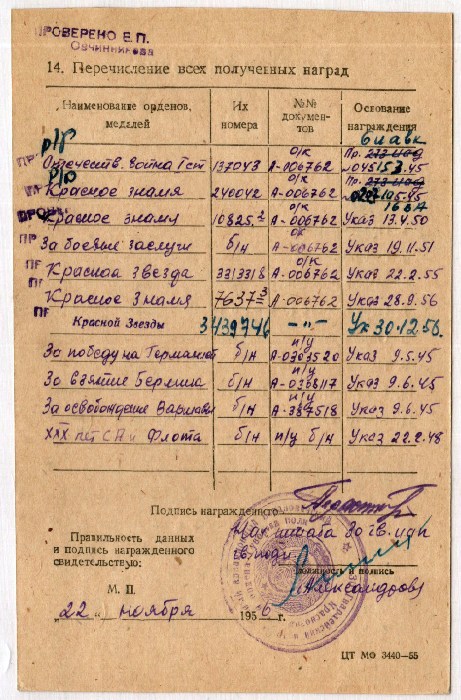 ПРОВЕРЕНО Е.П.
Овчинникова
14. Перечисление всех полученных наград
Наименование орденов, медалей | Их номера | №№ документов | Основание награждения
Отечеств. война Iст | 137043 | о/к А-006762 | Пр. 045 15.3.45
Красное знамя | 240042 | о/к А-006762 | 5.45
Красное знамя | 10825-2 | о/к А-006762 | Указ 13.4.50
За боевые заслуги | б/н | о/к А-006762 | Указ 19.11.51
Красная Звезда | 3313318 | о/к А-006762 | Указ 22.2.55
Красное Знамя | 7637-3 | А-006762 | Указ 28.9.56
Красной Звезды | 3439746 | -"- | Ук 30.12.56.
За победу над Германией | б/н | А-0303520 | Указ 9.5.45
За взятие Берлина | б/н | п/у А-0368117 | Указ 9.6.45
За освобождение Варшавы | б/н | п/у А-387518 | Указ 9.6.45
XXX лет СА и Флота | б/н | п/у б/н | Указ 22.2.48
Подпись награжденного
Правильность данных
и подпись награжденного
свидетельствую:
Нач штаба
должность и подпись
Александров
М. П.
„22„ ноября 1956 г.
ЦТ МО 3440—55